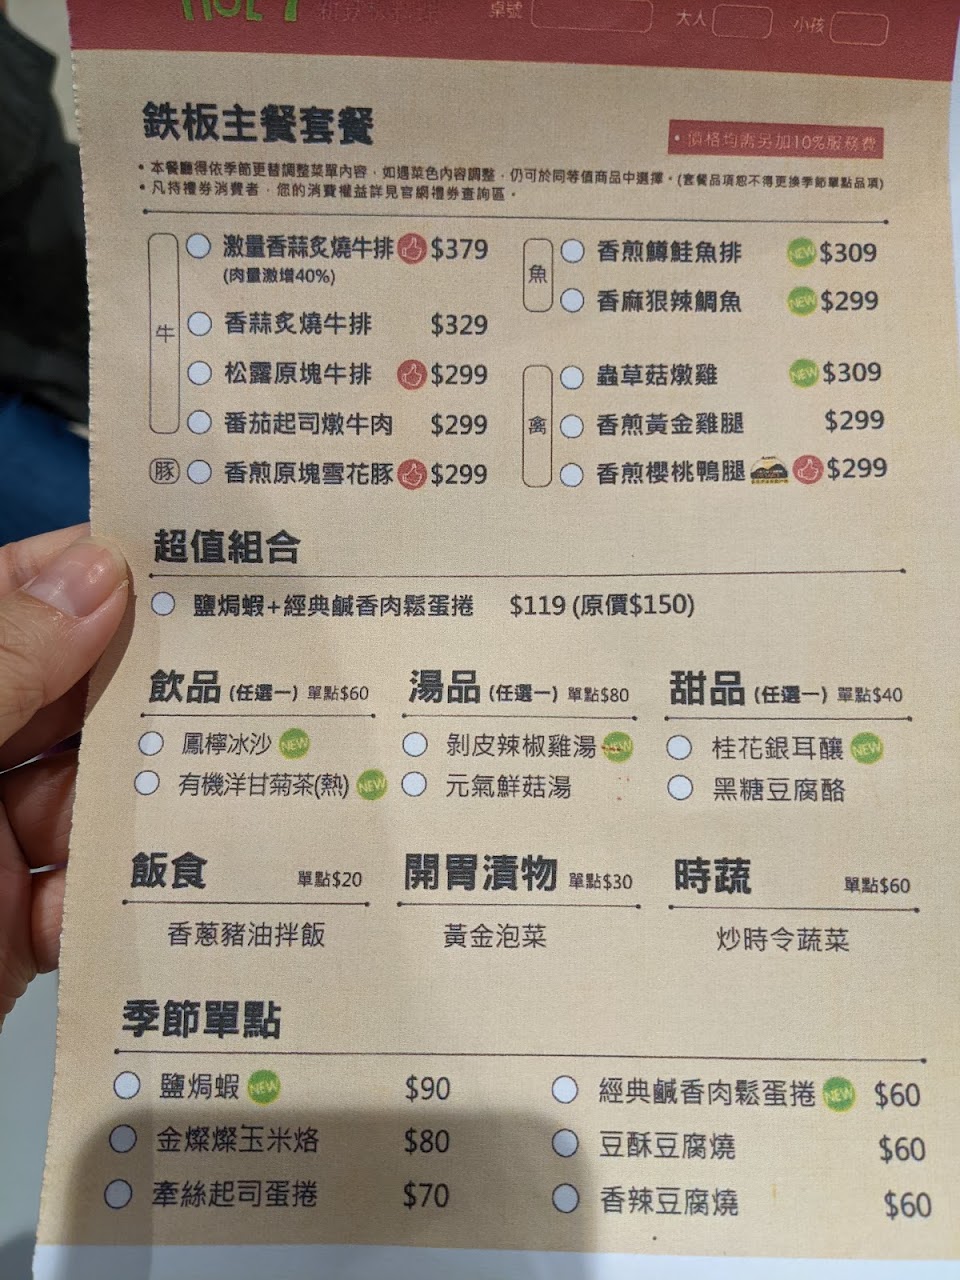 HOT 7
桌號 大人 小孩
鉄板主餐套餐
•價格均需另加10%服務費
•本餐廳得依季節更替調整菜單內容，如遇菜色內容調整，仍可於同等值商品中選擇。(套餐品項恕不得更換季節單點品項)
•凡持禮券消費者，您的消費權益詳見官網禮券查詢區。
牛
激量香蒜炙燒牛排 $379
(肉量激增40%)
香蒜炙燒牛排 $329
松露原塊牛排 $299
番茄起司燉牛肉 $299
豚
香煎原塊雪花豚 $299
魚
香煎鱒鮭魚排 NEW $309
香麻狠辣鯛魚 NEW $299
禽
蟲草菇燉雞 NEW $309
香煎黃金雞腿 $299
香煎櫻桃鴨腿 $299
超值組合
鹽焗蝦+經典鹹香肉鬆蛋捲 $119 (原價$150)
飲品 (任選一) 單點$60
鳳檸冰沙 NEW
有機洋甘菊茶(熱) NEW
湯品 (任選一) 單點$80
剝皮辣椒雞湯 NEW
元氣鮮菇湯
甜品 (任選一) 單點$40
桂花銀耳釀 NEW
黑糖豆腐酪
飯食 單點$20
香蔥豬油拌飯
開胃漬物 單點$30
黃金泡菜
時蔬 單點$60
炒時令蔬菜
季節單點
鹽焗蝦 NEW $90
金燦燦玉米烙 $80
牽絲起司蛋捲 $70
經典鹹香肉鬆蛋捲 NEW $60
豆酥豆腐燒 $60
香辣豆腐燒 $60